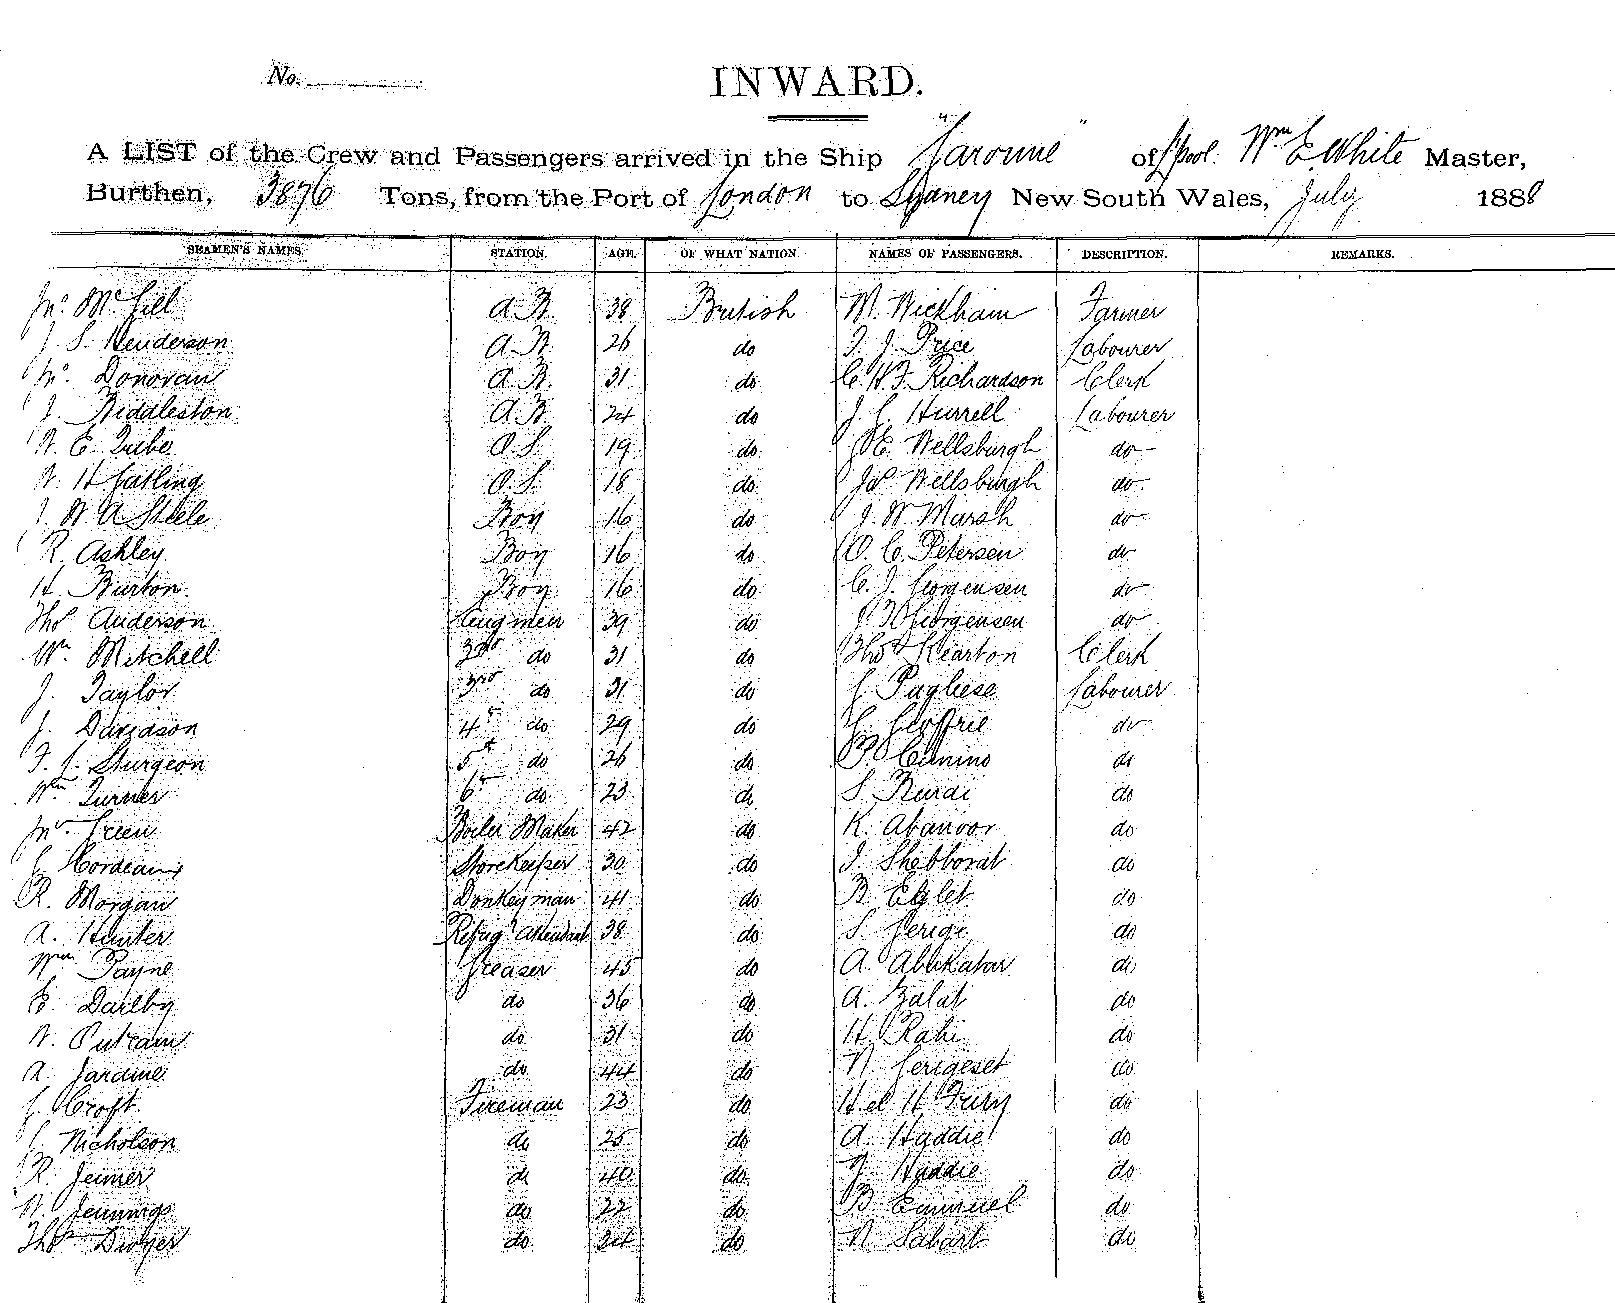 No.
INWARD.
A LIST of the Crew and Passengers arrived in the Ship "Garonne" of L'pool. Wm E White Master,
Burthen, 3876 Tons, from the Port of London to Sydney New South Wales, July 1888
SEAMEN'S NAMES. STATION. AGE. OF WHAT NATION. NAMES OF PASSENGERS. DESCRIPTION. REMARKS.
Jno. McGill A.B. 38 British W. Wickham Farmer
J. S. Henderson A.B. 26 do J. Price Labourer
Jno. Donovan A.B. 31 do C. H. F. Richardson Clerk
J. Biddleston A.B. 24 do J. C. Hurrell Labourer
W. E. O.S. 19 do Wellsburgh do
W. H. Gatling O.S. 18 do Jas Wellsburgh do
J. W. A. Steele Boy 16 do J. W. Marsh do
R. Ashley Boy 16 do O. C. Petersen do
H. Burton Boy 16 do C. J. Jorgensen do
Thos Anderson Engineer 39 do Jorgensen do
Wm. Mitchell 2nd do 31 do Thos Kearton Clerk
J. Taylor 3rd do 31 do G. Pugliese Labourer
J. Davidson 4th do 29 do G. do
F. G. Sturgeon 5th do 26 do P. Cunino do
Wm Turner 6th do 23 do S. do
Jno. Green Boiler Maker 42 do K. Abanoor do
G. Storekeeper 30 do J. Shebborat do
R. Morgan Donkeyman 41 do B. Eglet do
A. Hunter Refrig' Attendant 38 do S. Gerige do
Wm Payne Greaser 45 do A. Abukatar do
E. Dailby do 36 do A. Zalat do
W. Putram do 31 do H. Rahi do
A. Jardine do 44 do N. Gerigeset do
G. Croft Fireman 23 do H el H Fury do
G. Nicholson do 25 do A. Haddie do
R. Jeimer do 40 do Haddie do
W. Jennings do 22 do B. Emmuel do
Thos Dwyer do 24 do N. Sabart do